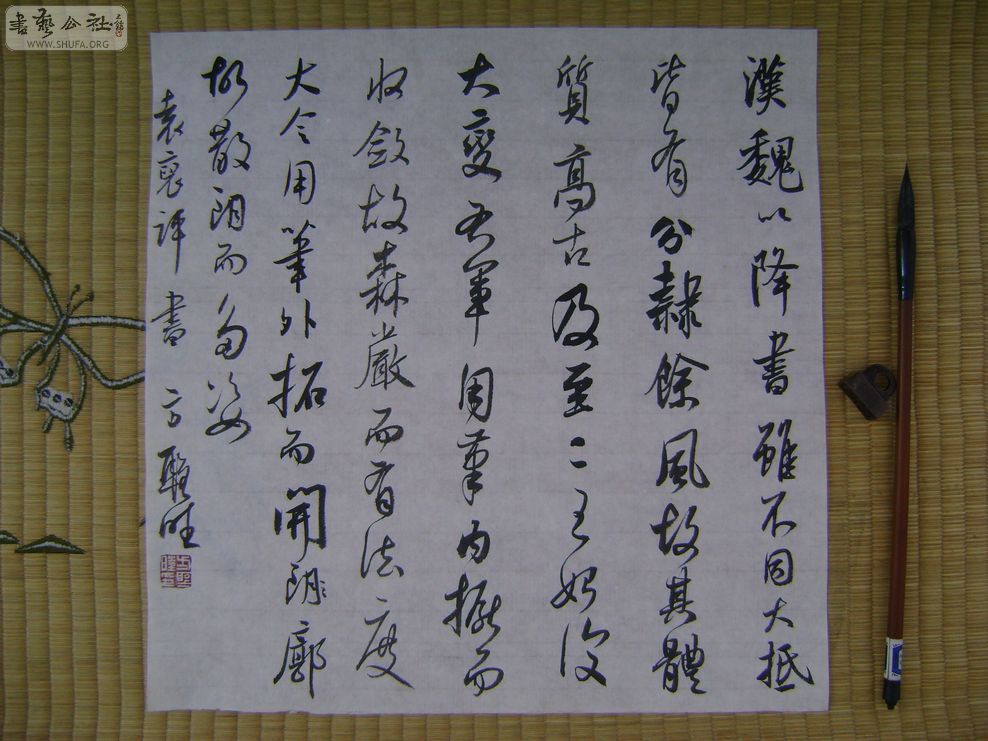 書藝公社
WWW.SHUFA.ORG
漢魏以降書雖不同大抵
皆有分隸餘風故其體
質高古及至二王始復
大變右軍用筆内擫而
收斂故森嚴而有法度
大令用筆外拓而開朗廓
故散朗而多姿
袁裒評書 方